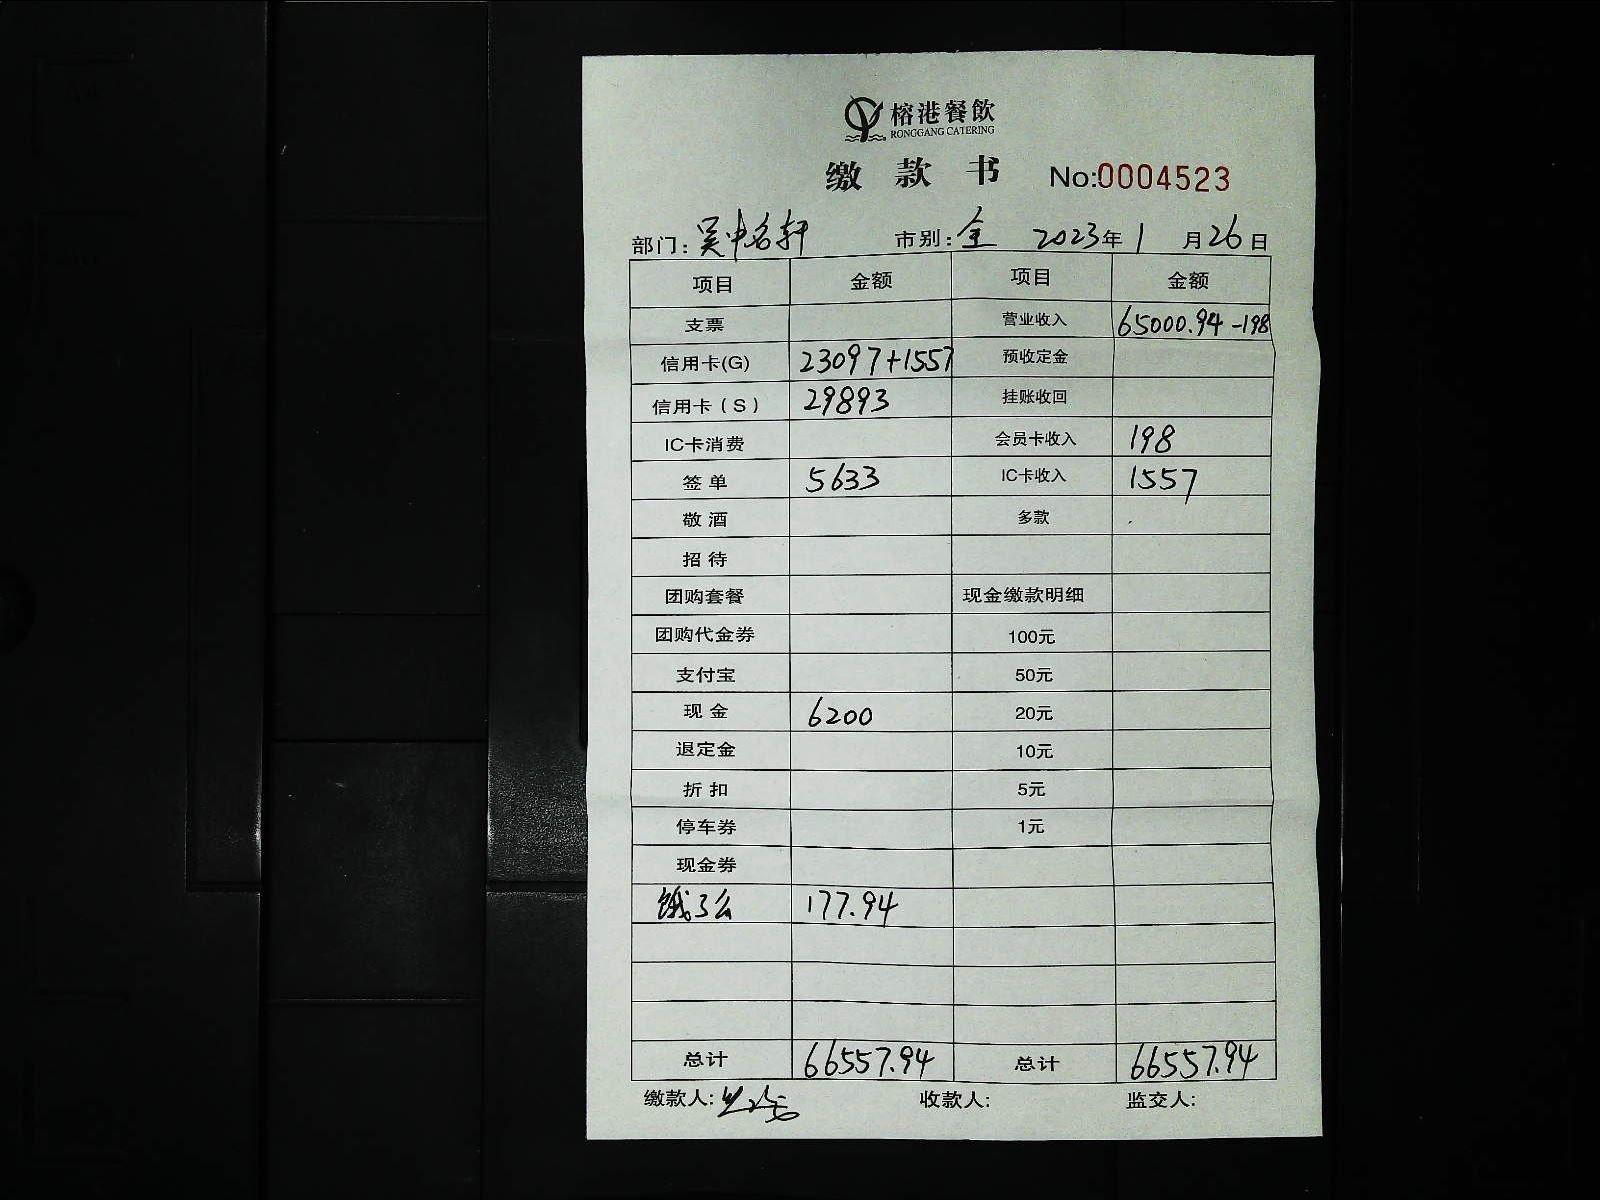 榕港餐飲
RONGGANG CATERING
缴款书 No:0004523
部门: 吴中名轩 市别: 全 2023年1月26日
项目 金额 项目 金额
支票 营业收入 65000.94 -198
信用卡(G) 23097+1557 预收定金
信用卡(S) 29893 挂账收回
IC卡消费 会员卡收入 198
签单 5633 IC卡收入 1557
敬酒 多款
招待
团购套餐 现金缴款明细
团购代金券 100元
支付宝 50元
现金 6200 20元
退定金 10元
折扣 5元
停车券 1元
现金券
饿了么 177.94
总计 66557.94 总计 66557.94
缴款人: 收款人: 监交人: